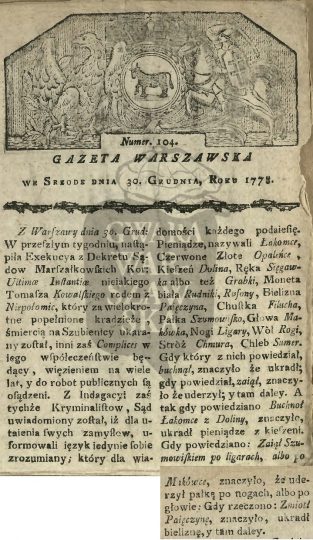 Numer. 104.
GAZETA WARSZAWSKA
WE SRZODE DNIA 30. GRUDNIA, ROKU 1778.
Z Warszawy dnia 30. Grud:
W przeszłym tygodniu, nastą-
piła Exekucya z Dekretu Są-
dow Marszałkowskich Kor:
Ultimæ Instantiæ nieiakiego
Tomasza Kowalskiego rodem z
Niepołomic, który za wielokro-
tne popełnione kradzieże,
śmiercią na Szubienicy ukara-
ny został, inni zaś Complices w
iego wspołeczeństwie bę-
dący, więzieniem na wiele
lat, y do robot publicznych są
osądzeni. Z Indagacyi zaś
tychże Kryminalistow, Sąd
uwiadomiony został, iż dla u-
taienia swych zamysłow, u-
formowali ięzyk iedynie sobie
zrozumiany; który dla wia-
domości każdego podaiesię.
Pieniądze, nazywali Łakomce,
Czerwone Złote Opaleńce,
Kieszeń Dolina, Ręka Sięgaw-
ka albo też Grabki, Moneta
biała Rudniki, Rosony, Bielizna
Paięczyna, Chustka Filucha,
Pałka Szumowiłka, Głowa Ma-
kówka, Nogi Ligary, Wół Rogi,
Stróż Chmura, Chleb Sumer.
Gdy który z nich powiedział,
buchnął, znaczyło że ukradł;
gdy powiedział, zaiął, znaczy-
ło że uderzył; y tam daley. A
tak gdy powiedziano Buchnoł
Łakomce z Doliny, znaczyło,
ukradł pieniądze z kieszeni.
Gdy powiedziano: Zaiął Szu-
mowiłkiem po ligarach, albo po
Makówce, znaczyło, że ude-
rzył pałką po nogach, albo po
głowie: Gdy rzeczono: Zmiotł
Paięczynę, znaczyło, ukradł
bieliznę, y tam daley.